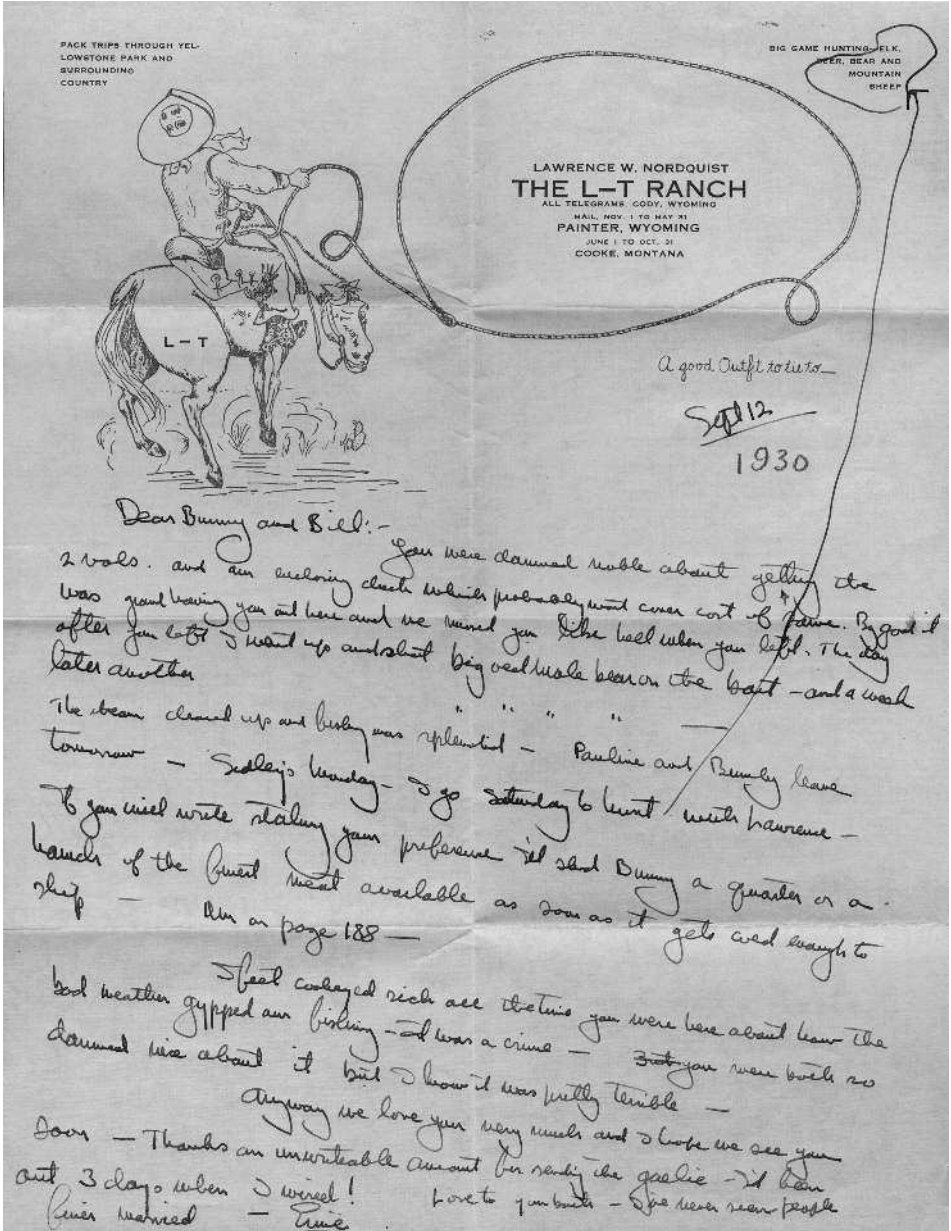 PACK TRIPS THROUGH YEL-
LOWSTONE PARK AND
SURROUNDING
COUNTRY
BIG GAME HUNTING—ELK,
DEER, BEAR AND
MOUNTAIN
SHEEP
LAWRENCE W. NORDQUIST
THE L—T RANCH
ALL TELEGRAMS, CODY, WYOMING
MAIL, NOV. 1 TO MAY 31
PAINTER, WYOMING
JUNE 1 TO OCT. 31
COOKE, MONTANA
L—T
A good Outfit to tie to—
Sept 12
1930
Dear Bunny and Bill:-
You were damned noble about getting the
2 vols. and am enclosing check which probably wont cover cost of same. By god it
was grand having you out here and we missed you like hell when you left. The day
after you left I went up and shot big male bear on the bait — and a week
later another " " " " —
The cleared up and fishing was splendid — Pauline and leave
tomorrow — Sidley's Monday — I go Saturday to hunt with Lawrence —
If you will write stating your preference I'll send Bunny a quarter or a
haunch of the finest meat available as soon as it gets cold enough to
ship — Am on page 188 —
I feel sick all the time you were here about how the
bad weather gypped our fishing — It was a crime — But you were both so
damned nice about it but I know it was pretty terrible —
Anyway we love you very much and I hope we see you
soon — Thanks an unwriteable amount for sending the — I'd been
out 3 days when I wired! Love to you both — I've never seen people
finer married — Ernie.